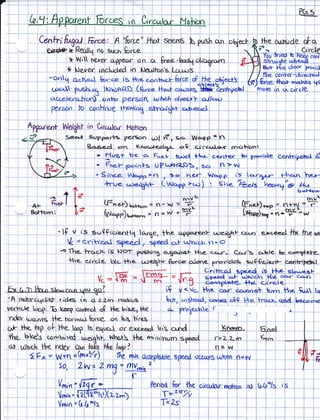 PG 3
6.4: Apparent Forces in Circular Motion
Centrifugal Force: A "force" that seems to push an object to the outside of a circle
* Really no such force
* Will never appear on a free-body diagram
* Never included in Newton's Laws
- Only actual force is the contact force of the object's
wall pushing INWARD (force that causes centripetal
acceleration) onto person, which doesn't allow
person to continue moving straight ahead
You tried to keep moving
straight ahead
But the door provides
the center-directed
force that makes you
move in a circle
Apparent Weight in Circular Motion
Seat supports person w/ n, so Wapp = n
Based on knowledge of circular motion:
* Must be a Fnet toward the center to provide centripetal a
* Fnet points UPWARDS, so n > w
* Since Wapp = n, so her Wapp is larger than her
true weight (Wapp > w) : She "feels heavy" @ the
bottom
At
Bottom:
(Fnet)bottom = n - w = mv²/r
(Wapp)bottom = n = w + mv²/r
(Fnet)top = n + w = mv²/r
(Wapp)top = n = mv²/r - w
- If v is sufficiently large, the apparent weight can exceed the true w
Vc = critical speed, speed at which n = 0
→ The track is NOT pushing against the car. Car's able to complete
the circle b/c the weight force alone provides sufficient centripetal
Vc = √(rw/m) = √(rmg/m) = √(rg)
Critical speed is the slowest
speed at which the car can
complete the circle.
If v < Vc the car cannot turn the full loop
but, instead, comes off the track and becomes
a projectile!
Ex 6.7: How slow can you go?
"A motorcyclist rides in a 2.2m radius
vertical loop. To keep control of the bike, the
rider wants the normal force on his tires
at the top of the loop to equal or exceed his and
the bike's combined weight. What's the minimum speed
at which the rider can take the loop?
Known
r = 2.2m
n = w
Find
Vmin
ΣFx = w + n = (mv²/r) The min acceptable speed occurs when n = w
So, 2w = 2mg = mvmin²/r
Vmin = √(2gr) =
Vmin = √(2(9.8 m/s²)(2.2m))
Vmin = 6.6 m/s
Period for the circular motion at 6.6 m/s is
T = 2πr/v
T = 2s